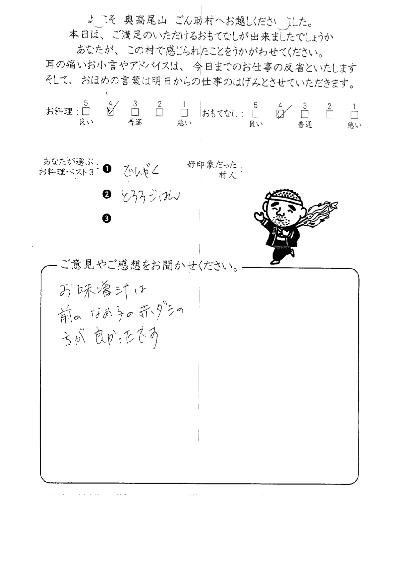 ようこそ 奥高尾山 ごん助村へお越しくださいました。
本日は、ご満足のいただけるおもてなしが出来ましたでしょうか
あなたが、この村で感じられたことをうかがわせてください。
耳の痛いお小言やアドバイスは、今日までのお仕事の反省といたします
そして、おほめの言葉は明日からの仕事のはげみとさせていただきます。
お料理: 5 4 3 2 1 おもてなし: 5 4 3 2 1
良い 普通 悪い 良い 普通 悪い
あなたが選ぶ
お料理ベスト3: ❶ でんがく 好印象だった
村人:
❷ とろろごはん
❸
ご意見やご感想をお聞かせください。
お味噌汁は
前の なめ子の赤ダシの
方が良かったです